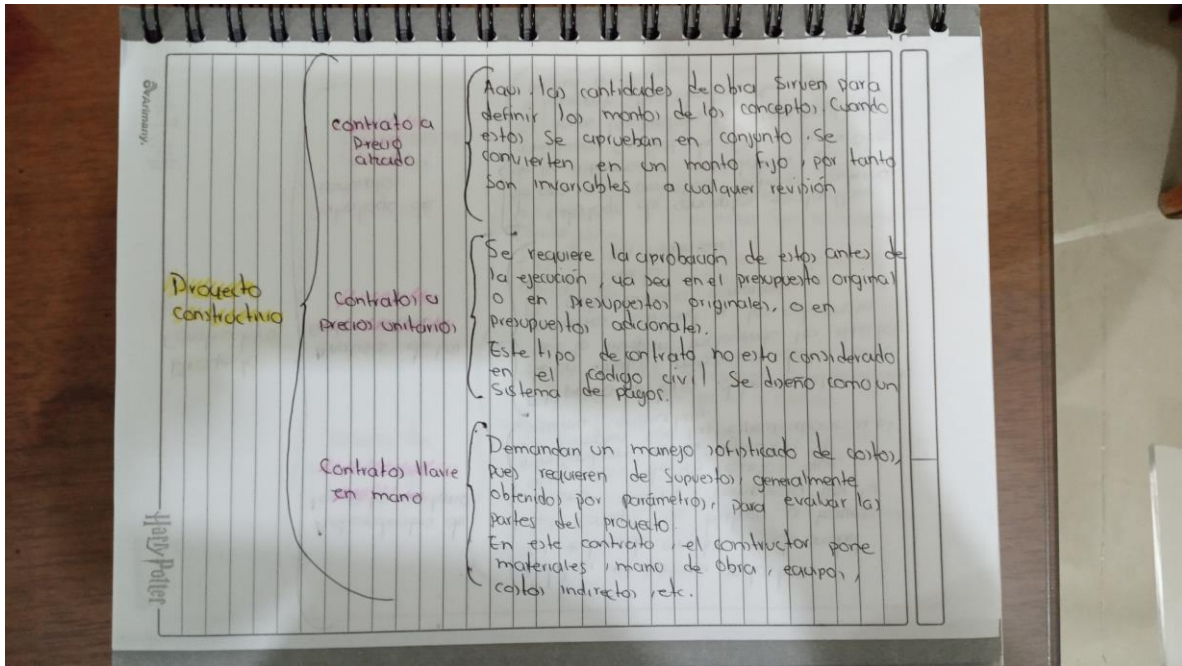 Proyecto
constructivo
contrato a
precio
alzado
Aquí las cantidades de obra sirven para
definir los montos de los conceptos, Cuando
estos se aprueban en conjunto. Se
convierten en un monto fijo, por tanto
Son invariables a cualquier revisión
Contratos a
precios unitarios
Se requiere la aprobación de estos antes de
la ejecución, ya sea en el presupuesto original
o en presupuestos originales, o en
presupuestos adicionales.
Este tipo de contrato, no esta considerado
en el código civil Se diseño como un
Sistema de pagos.
Contratos llave
en mano
Demandan un manejo sofisticado de costos,
pues requieren de supuestos, generalmente
obtenidos por parámetros, para evaluar las
partes del proyecto
En este contrato, el constructor pone
materiales, mano de obra, equipos,
costos indirectos, etc.
Harry Potter